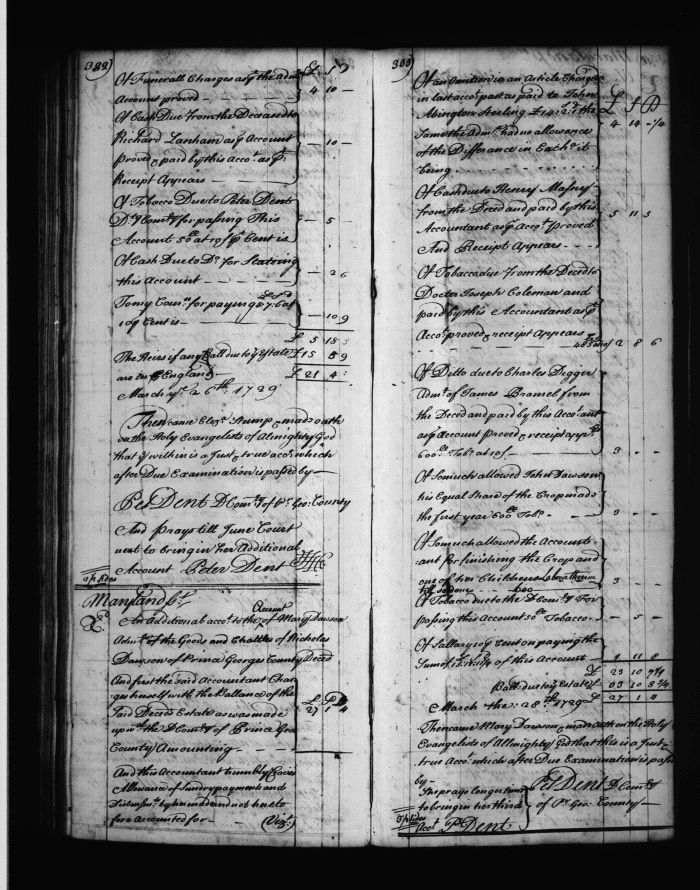 382)
£ S D
Of Funerall Charges as p the
Account proved 4 10 —
Of Cash Due from the Deceased to
Richard Lanham as p Account
proved & paid by this Acco.t as p — 10 —
Receipt Appears —
Of Tobacco Due to Peter Dent
D.y Com.ry for passing This — 5 —
Account 50 at 10/ p Cent is
Of Cash Due to D.o for Stating
this Account — 2 6
To my Com.n for paying
10 p Cent is — 10 9
£ 5 18 3
The Heirs if any Ball due to y.e Estate £15 5 9
are in England £ 21 4
March y.e 26.th 1729
Then came Eliz.a Stump & made oath
on the Holy Evangelists of Almighty God
that y.e within is a Just & true acc.t which
after Due Examination is passed by —
Pet Dent D Com.ry of P.r Geo: County
And prays till June Court
next to bring in her Additional
Account Peter Dent
Maryland ss.t
Account
An Additional acc.t to the of Mary Dawson
Adm.x of the Goods and Chattles of Nicholas
Dawson of Prince Georges County Deced
And first the said Accountant Char
ges herself with the Ballance of the
said Deceds Estate as was made £ S D
up w.th the D Com.ry of Prince Geo 27 1 4
County Amounting —
And this Accountant humbly Craves
Allowance of Sundry payments and
Disbursm.ts by her made and not hereto
fore Accounted for — (Viz.t)
383
Of an Omition in an Article Charged
in last acco.t past as paid to John £ S D
Abington Sterling £14:2:1 the
Same the Adm.x had no allowance 4 14 –¼
of the Difference in Exch.a it
being
Of Cash due to Henry Massey
from the Deced and paid by this 5 11 3
Accountant as p Acco.t proved
And Receipt Appears - - - -
Of Tobacco due from the Deced to
Doctor Joseph Coleman and
paid by this Accountant as p
Acco.t proved & receipt appears
2 8 6
Of Ditto due to Charles Digger
Adm.r of James Bramel from
the Deced and paid by this Acco.ant
as p Account proved & receipt app.rs
600 Tob.o at 10/ — 3 - -
Of So much allowed John Dawson
his Equal Share of the Crop made
the first year 600 Tob.o - 3 - -
Of So much allowed the Account-
ant for finishing the Crop and
one of her Children
3 - -
Of Tobacco due to the D Com.ry For
passing this Account 50 Tobacco. — 5 —
Of Sallary 10 p Cent on paying the
Sum of of this Account 1 11 8
£ 23 10
Ball: due to y.e Estate £ 03 10 8¾
£ 27 1 4
March the 28.th 1729
Then came Mary Dawson & made oath on the Holy
Evangelists of Allmighty God that this is a Just &
true Acco.t which after Due Examination is passed
by — Pet Dent D Com.ry
She prays longer time of P.r Geo: County —
to bring in her third
Acct P Dent